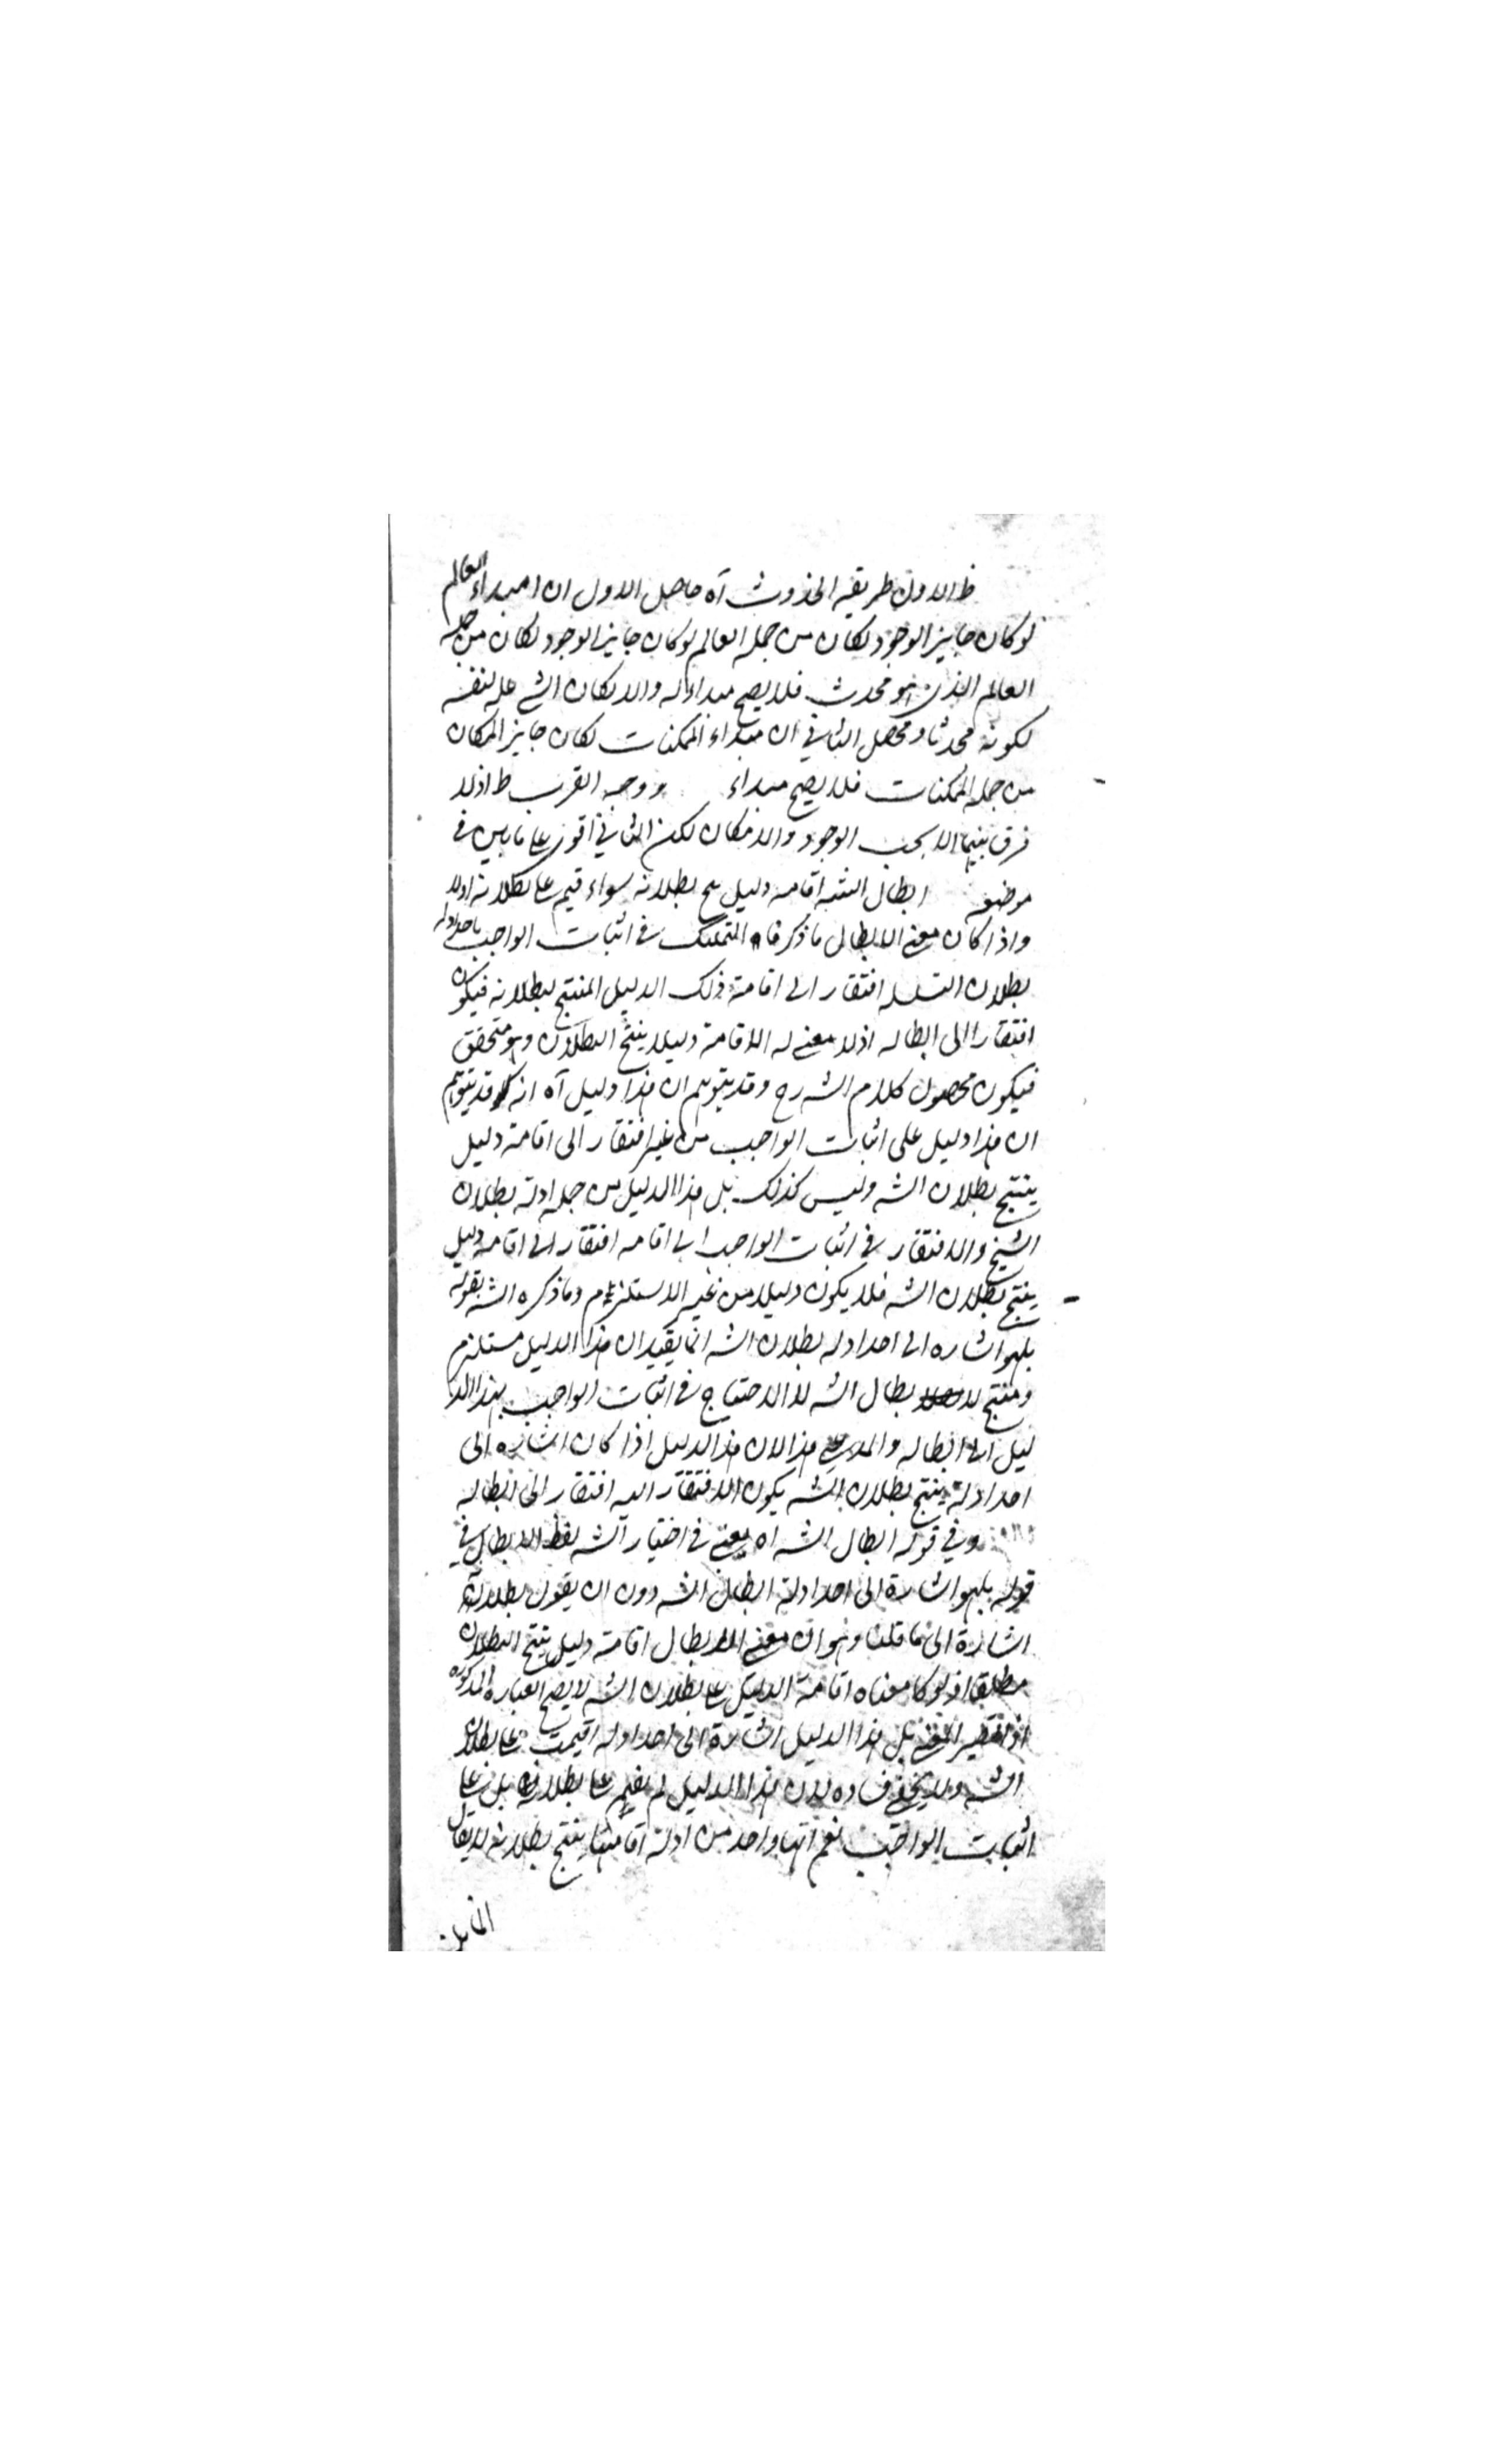 ظ الاول طريقه الحدوث آه حاصل الاول ان امبداء العالم
لو كان جايز الوجود لكان من جمله العالم لو كان جايز الوجود لكان من جمله
العالم الذى هو محدث فلا يصح مبداء له والا لكان الشى عله لنفسه
لكونه محدثا ومحصل الثاني ان مبداء الممكنات لكان جايز المكان
من جمله الممكنات فلا يصح مبداء ووجه القرب ظ اذ لا
فرق بينهما الا بحب الوجود والامكان لكن الثاني اقوى على ما بين في
موضعه ابطال التسه اقامه دليل ينتج بطلانه سواء قيم على بطلانه اولا
واذا كان معنى الابطال ما ذكر فا المتمسك في اثبات الواجب باحد ادله
بطلان التسلسله افتقار الى اقامة ذلك الدليل المنتج لبطلانه فيكون
افتقارا الى ابطاله اذ لا معنى له الا اقامة دليلا ينتج البطلان وهو متحقق
فيكون محصول كلام الشرح وقد يتوهم ان هذا دليل آه انه قد يتوهم
ان هذا دليل على اثبات الواجب من غير افتقار الى اقامة دليل
ينتج بطلان الته وليس كذلك بل هذا الدليل من جمله ادلة بطلان
الشيخ والافتقار في اثبات الواجب الى اقامه افتقار الى اقامه دليل
ينتج بطلان الته فلا يكون دليلا من غير الاستلزام وما ذكره الشه بقوله
بلهو اشاره الى احد ادله بطلان الته انما يفيد ان هذا الدليل مستلزم
ومنتج لا بطال الته لا الاحتياج في اثبات الواجب بهذا الد
ليل الى ابطاله والمدعى هذا لان هذا الدليل اذا كان اشاره الى
احد ادلة ينتج بطلان الته يكون الافتقار اليه افتقار الى ابطاله
وفي قوله ابطال الته اه يعنى في اختيار الشه لفظ الابطال في
قوله بلهو اشارة الى احد ادلة ابطال الته دون ان يقول بطلانه
اشارة الى ما قلنا وهو ان معنى الابطال اقامة دليل ينتج البطلان
مطلقا اذ لو كا معناه اقامة الدليل على بطلان الته لا يصح العباره المذكوره
اذ يصير المعنى بل هذا الدليل اشارة الى احد ادله اقيمت على بطلان
الته ولا يخفى فساده لان هذا الدليل لم يقم على بطلانه بل على
اثبات الواجب نعم انها واحد من ادلة اقامتها ينتج بطلانه لا يقال